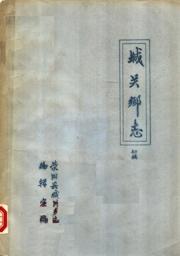 城关乡志
初稿
荥阳县城关乡志
编辑室编